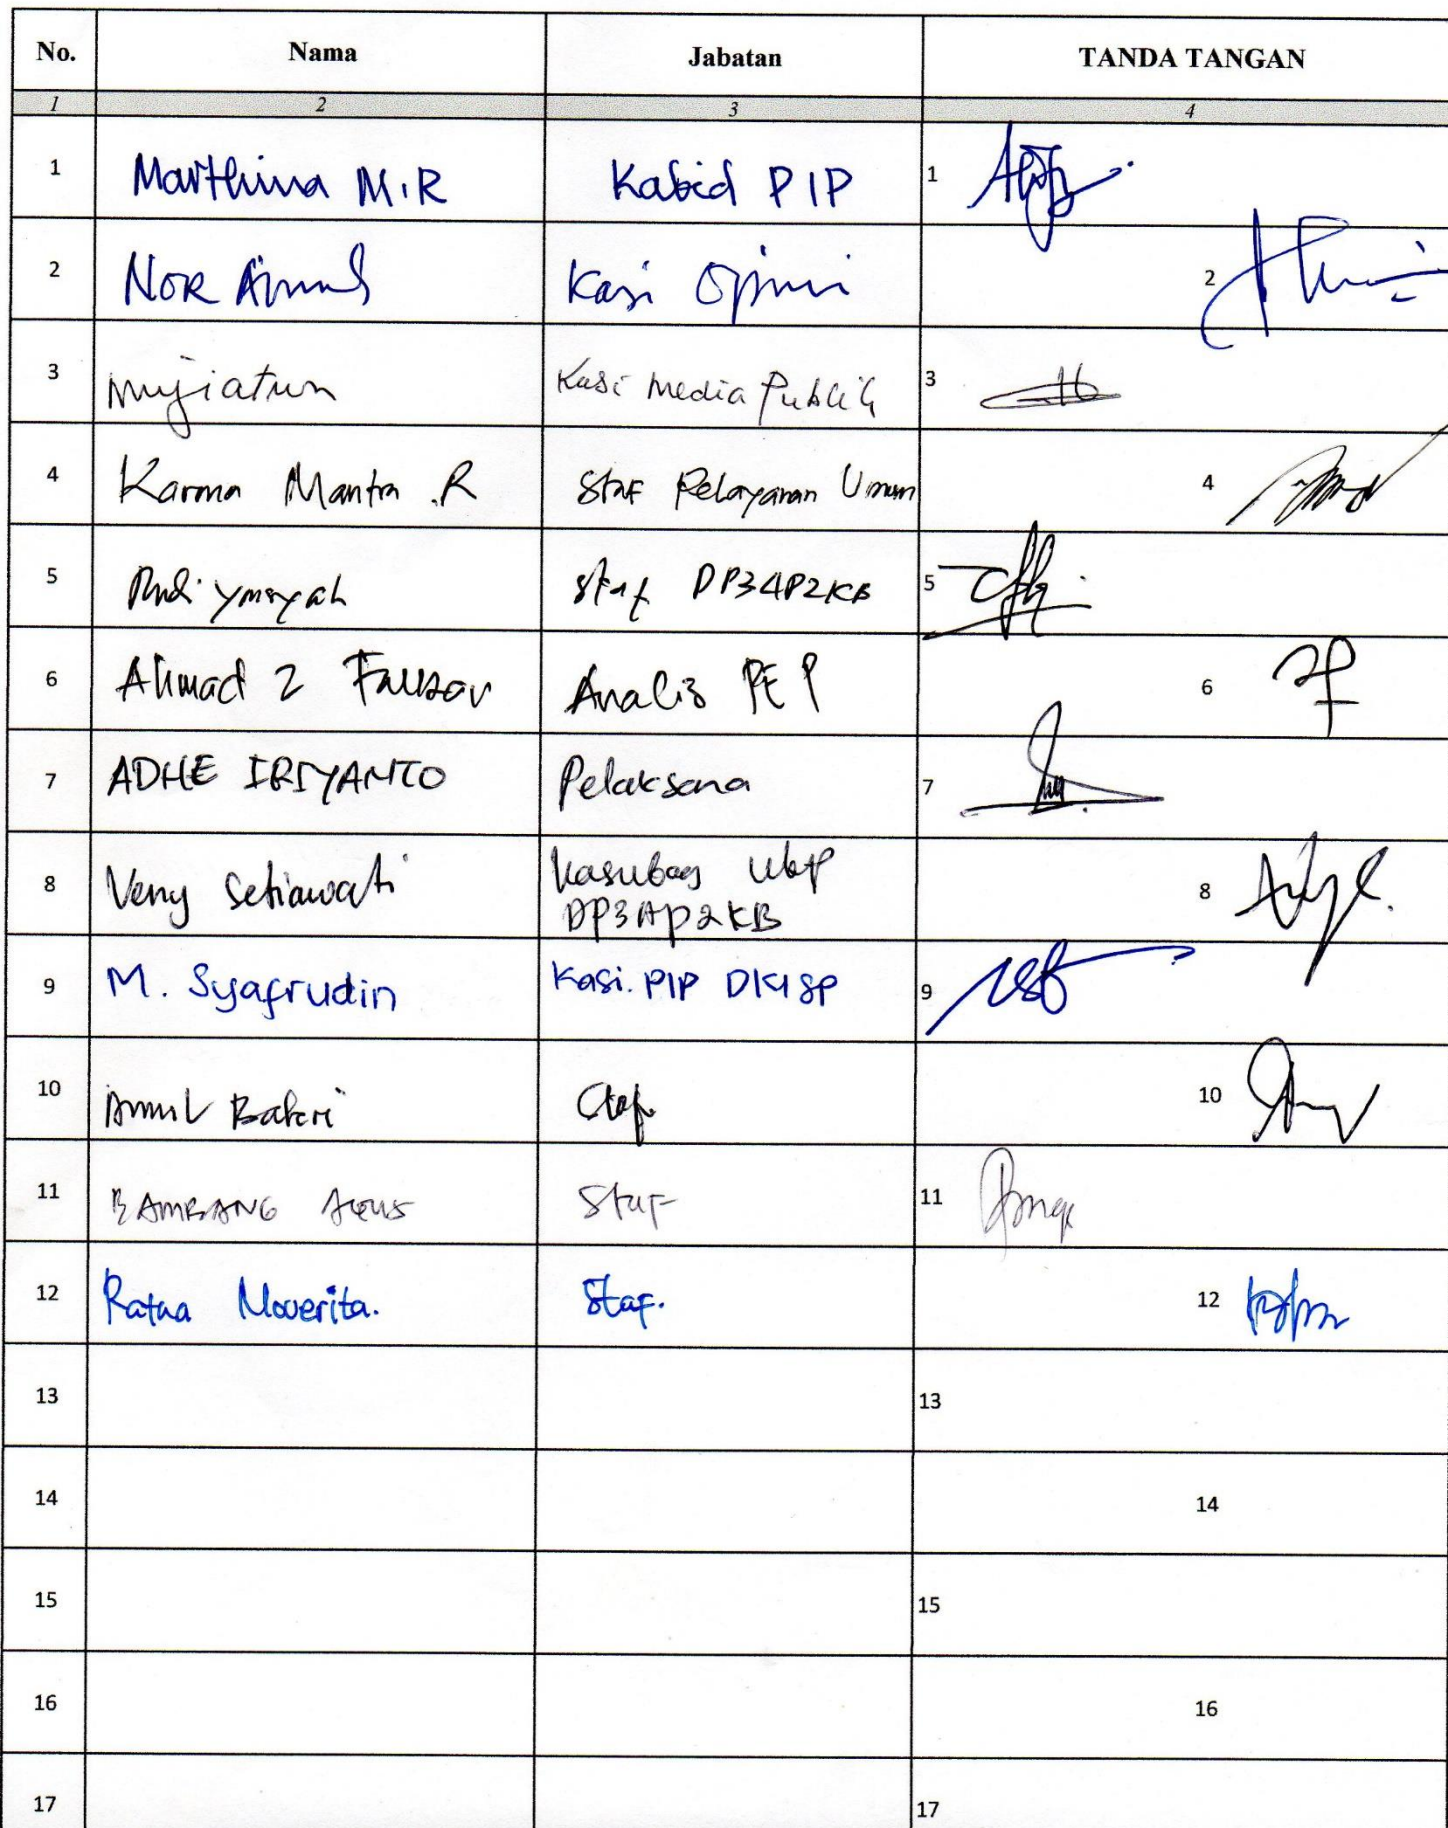 No. Nama Jabatan TANDA TANGAN
1 2 3 4
1 Marthina M.R Kabid PIP 1
2 NOR Kasi Opini 2
3 Mujiatun Kasi Media Publik 3
4 Karma Mantra .R Staf Pelayanan Umum 4
5 staf DP3AP2KB 5
6 Ahmad Z Fauzan Analis PEP 6
7 ADHE IRIYANTO Pelaksana 7
8 Veny Setiawati Kasubag 8
DP3AP2KB
9 M. Syafrudin Kasi. PIP DKISP 9
10 Bakri Staf 10
11 BAMBANG AGUS Staf 11
12 Ratna Moverita. Staf. 12
13 13
14 14
15 15
16 16
17 17